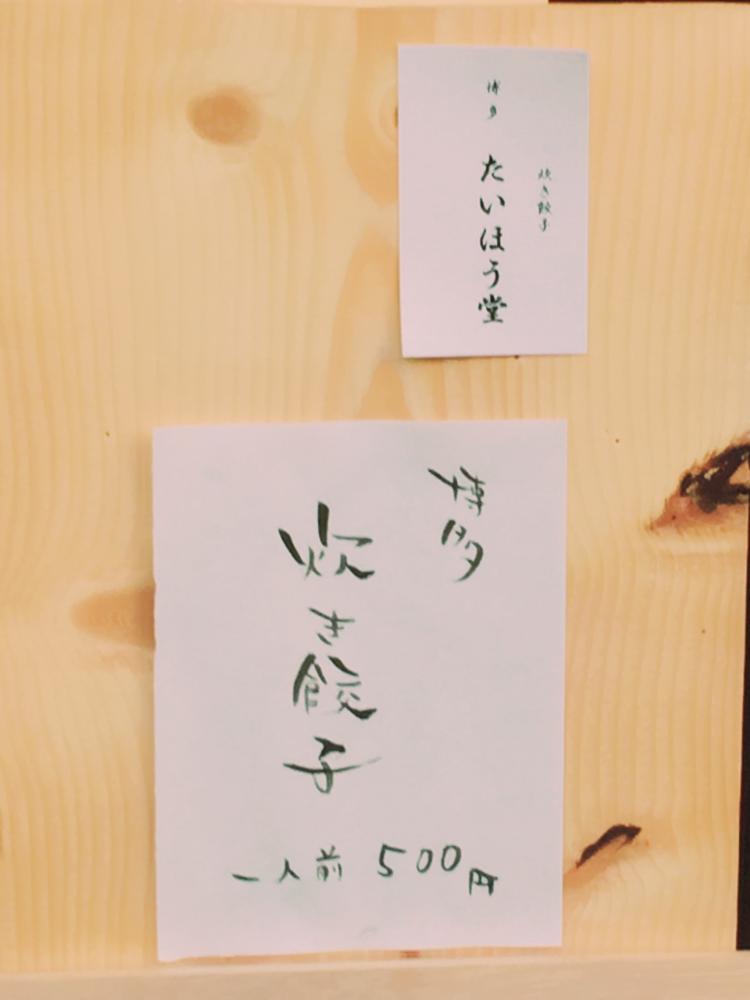 炊き餃子
博多
たいほう堂
博多
炊き餃子
一人前 500円